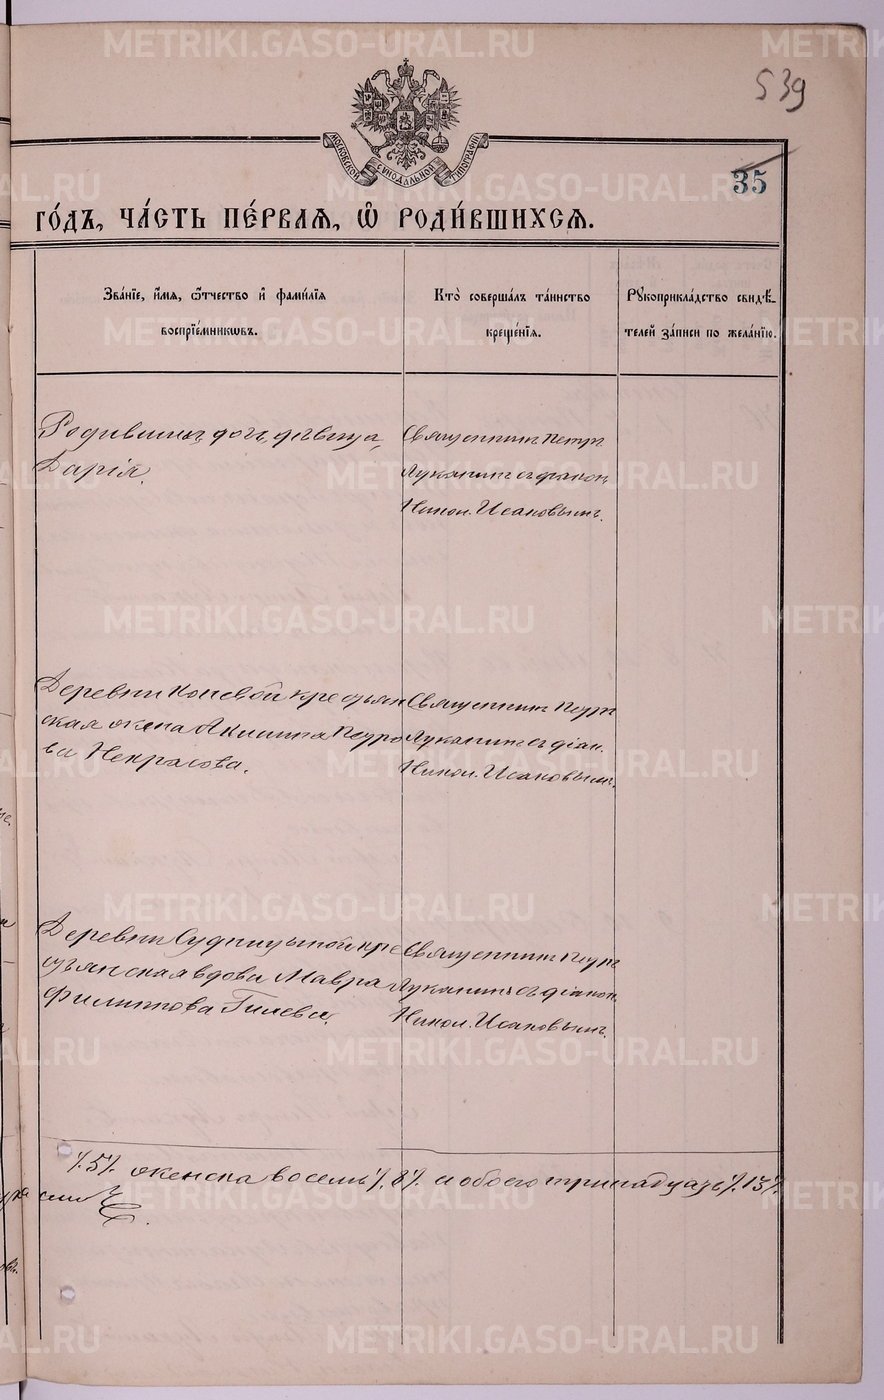 539
МОСКОВСКОЙ СѴНОДАЛЬНОЙ ТИПОГРАФІИ
35
го́дъ, ча́сть пе́рвая, ѽ роди́вшихся.
Зва́нїе, и́мя, ѻ҆́тчество и҆ фами́лїя
воспрїе́мникωвъ.
Кто̀ соверша́лъ та́инство
креще́нїя.
Рꙋкоприкла́дство свидѣ́-
телей за́писи по жела́нїю.
дочь дѣвица
Дарія.
Священникъ Петръ
Луканинъ съ діакон.
Никол. Исаковымъ.
Деревни Коневой крестьян
ская жена Акилина Петро
ва Некрасова.
Священникъ Петръ
Луканинъ съ діак.
Никол. Исаковымъ.
Деревни кре
стьянская вдова Мавра
Филиппова Гилева.
Священникъ Петръ
Луканинъ съ діакон.
Никол. Исаковымъ.
/.5/. женска восемь /.8/. и обоего тринадцать /.13/.
METRIKI.GASO-URAL.RU